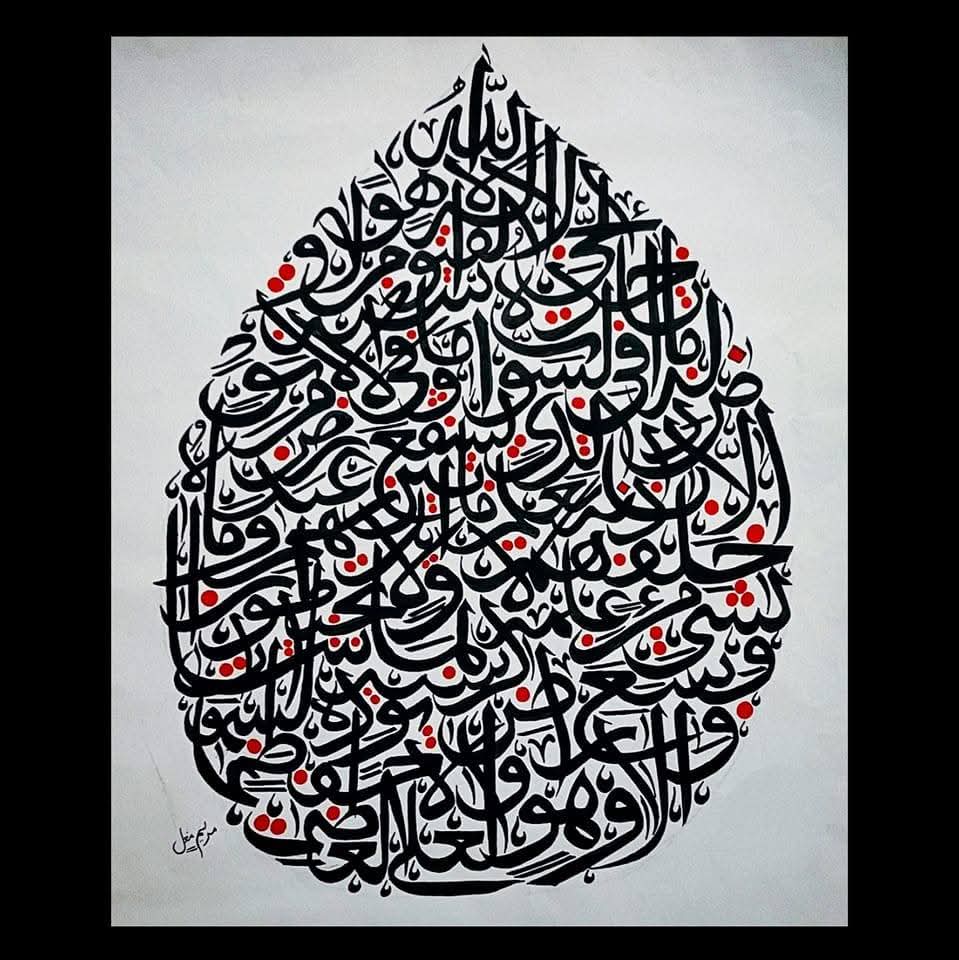 الله
لا اله الا هو
الحي القيوم لا
تاخذه سنة ولا نوم
له ما في السموات وما في
الارض من ذا الذي يشفع عنده
الا باذنه يعلم ما بين ايديهم وما
خلفهم ولا يحيطون
بشيء من علمه الا بما شاء
وسع كرسيه السموات
والارض ولا يئوده حفظهما
وهو العلي العظيم
مریم مغل